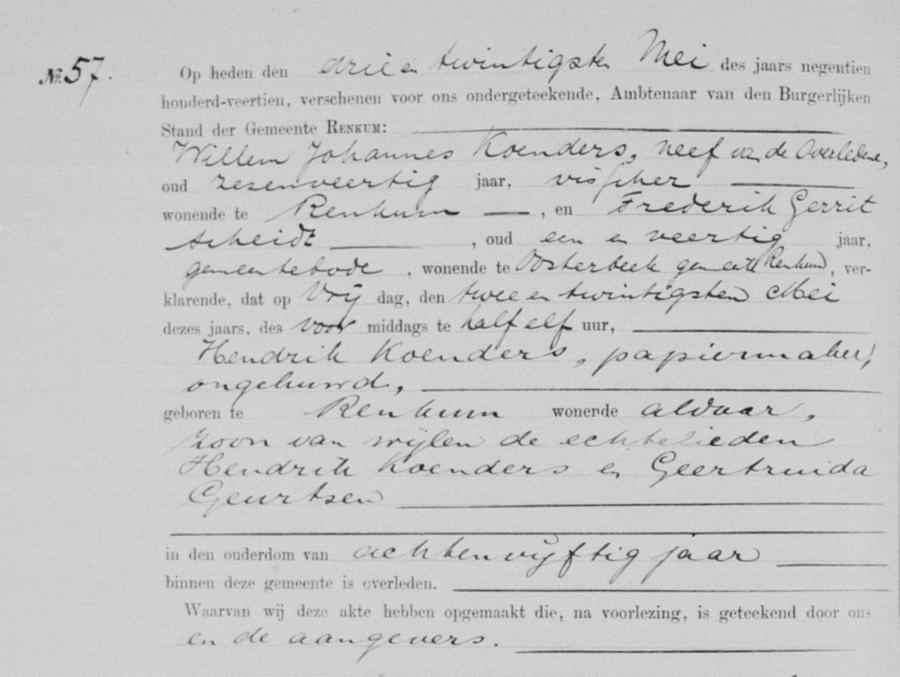 № 57.
Op heden den drie en twintigsten Mei des jaars negentien
honderd-veertien, verschenen voor ons ondergeteekende, Ambtenaar van den Burgerlijken
Stand der Gemeente RENKUM:
Willem Johannes Koenders, neef van de Overledene,
oud zesenveertig jaar, visscher
wonende te Renkum, en Frederik Gerrit
Scheidt, oud een en veertig jaar,
gemeentebode, wonende te Oosterbeek gemeente Renkum, ver-
klarende, dat op Vrij dag, den twee en twintigsten Mei
dezes jaars, des voor middags te half elf uur,
Hendrik Koenders, papiermaker,
ongehuwd,
geboren te Renkum wonende aldaar,
zoon van wijlen de echtelieden
Hendrik Koenders en Geertruida
Geurtsen
in den ouderdom van achtenvijftig jaar
binnen deze gemeente is overleden.
Waarvan wij deze akte hebben opgemaakt die, na voorlezing, is geteekend door ons
en de aangevers.